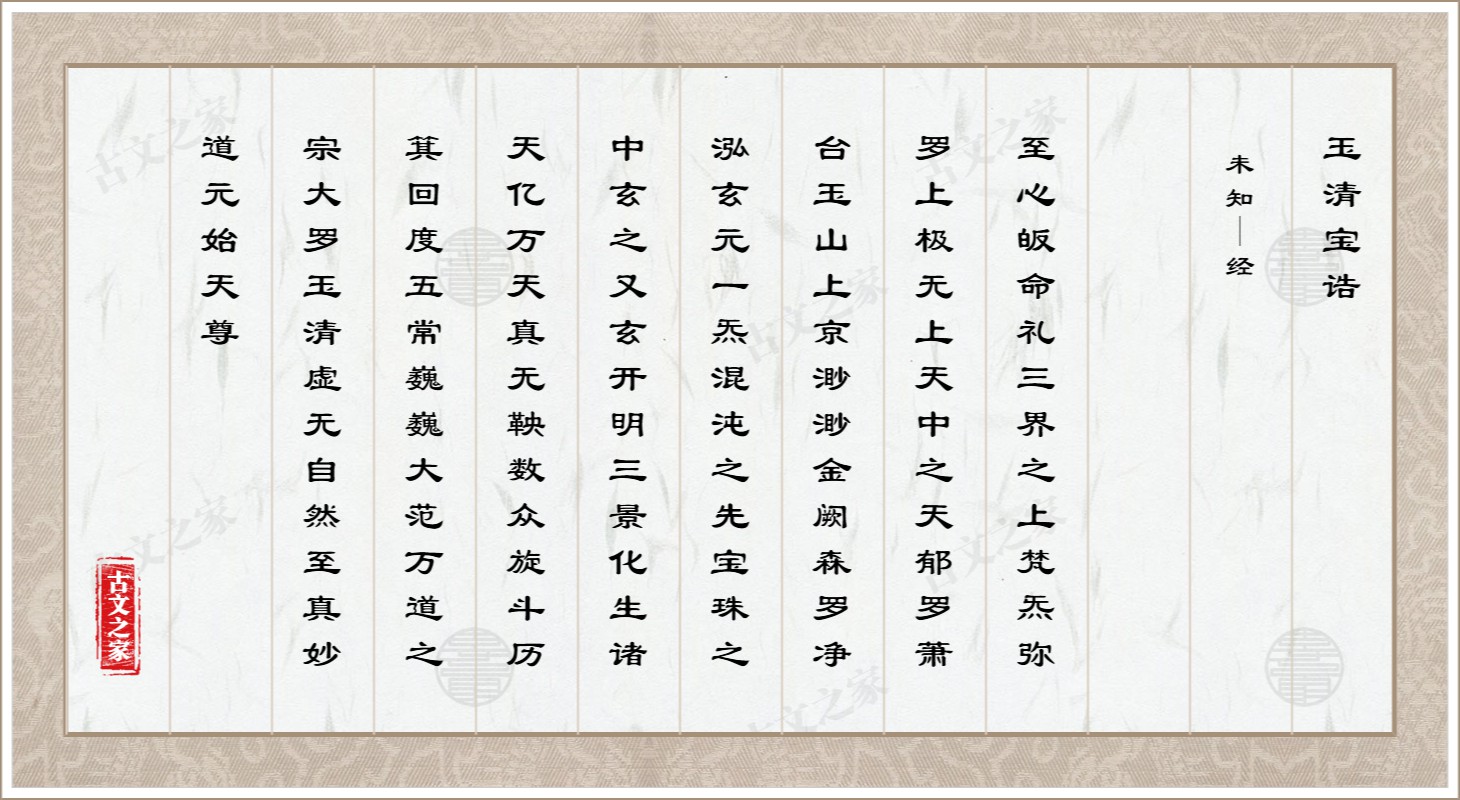 玉清宝诰
未知—经
至心皈命礼三界之上梵炁弥
罗上极无上天中之天郁罗萧
台玉山上京渺渺金阙森罗净
泓玄元一炁混沌之先宝珠之
中玄之又玄开明三景化生诸
天亿万天真无鞅数众旋斗历
箕回度五常巍巍大范万道之
宗大罗玉清虚无自然至真妙
道元始天尊
古文之家
古文之家
古文之家
古文之家
古文之家
古文之家
古文之家